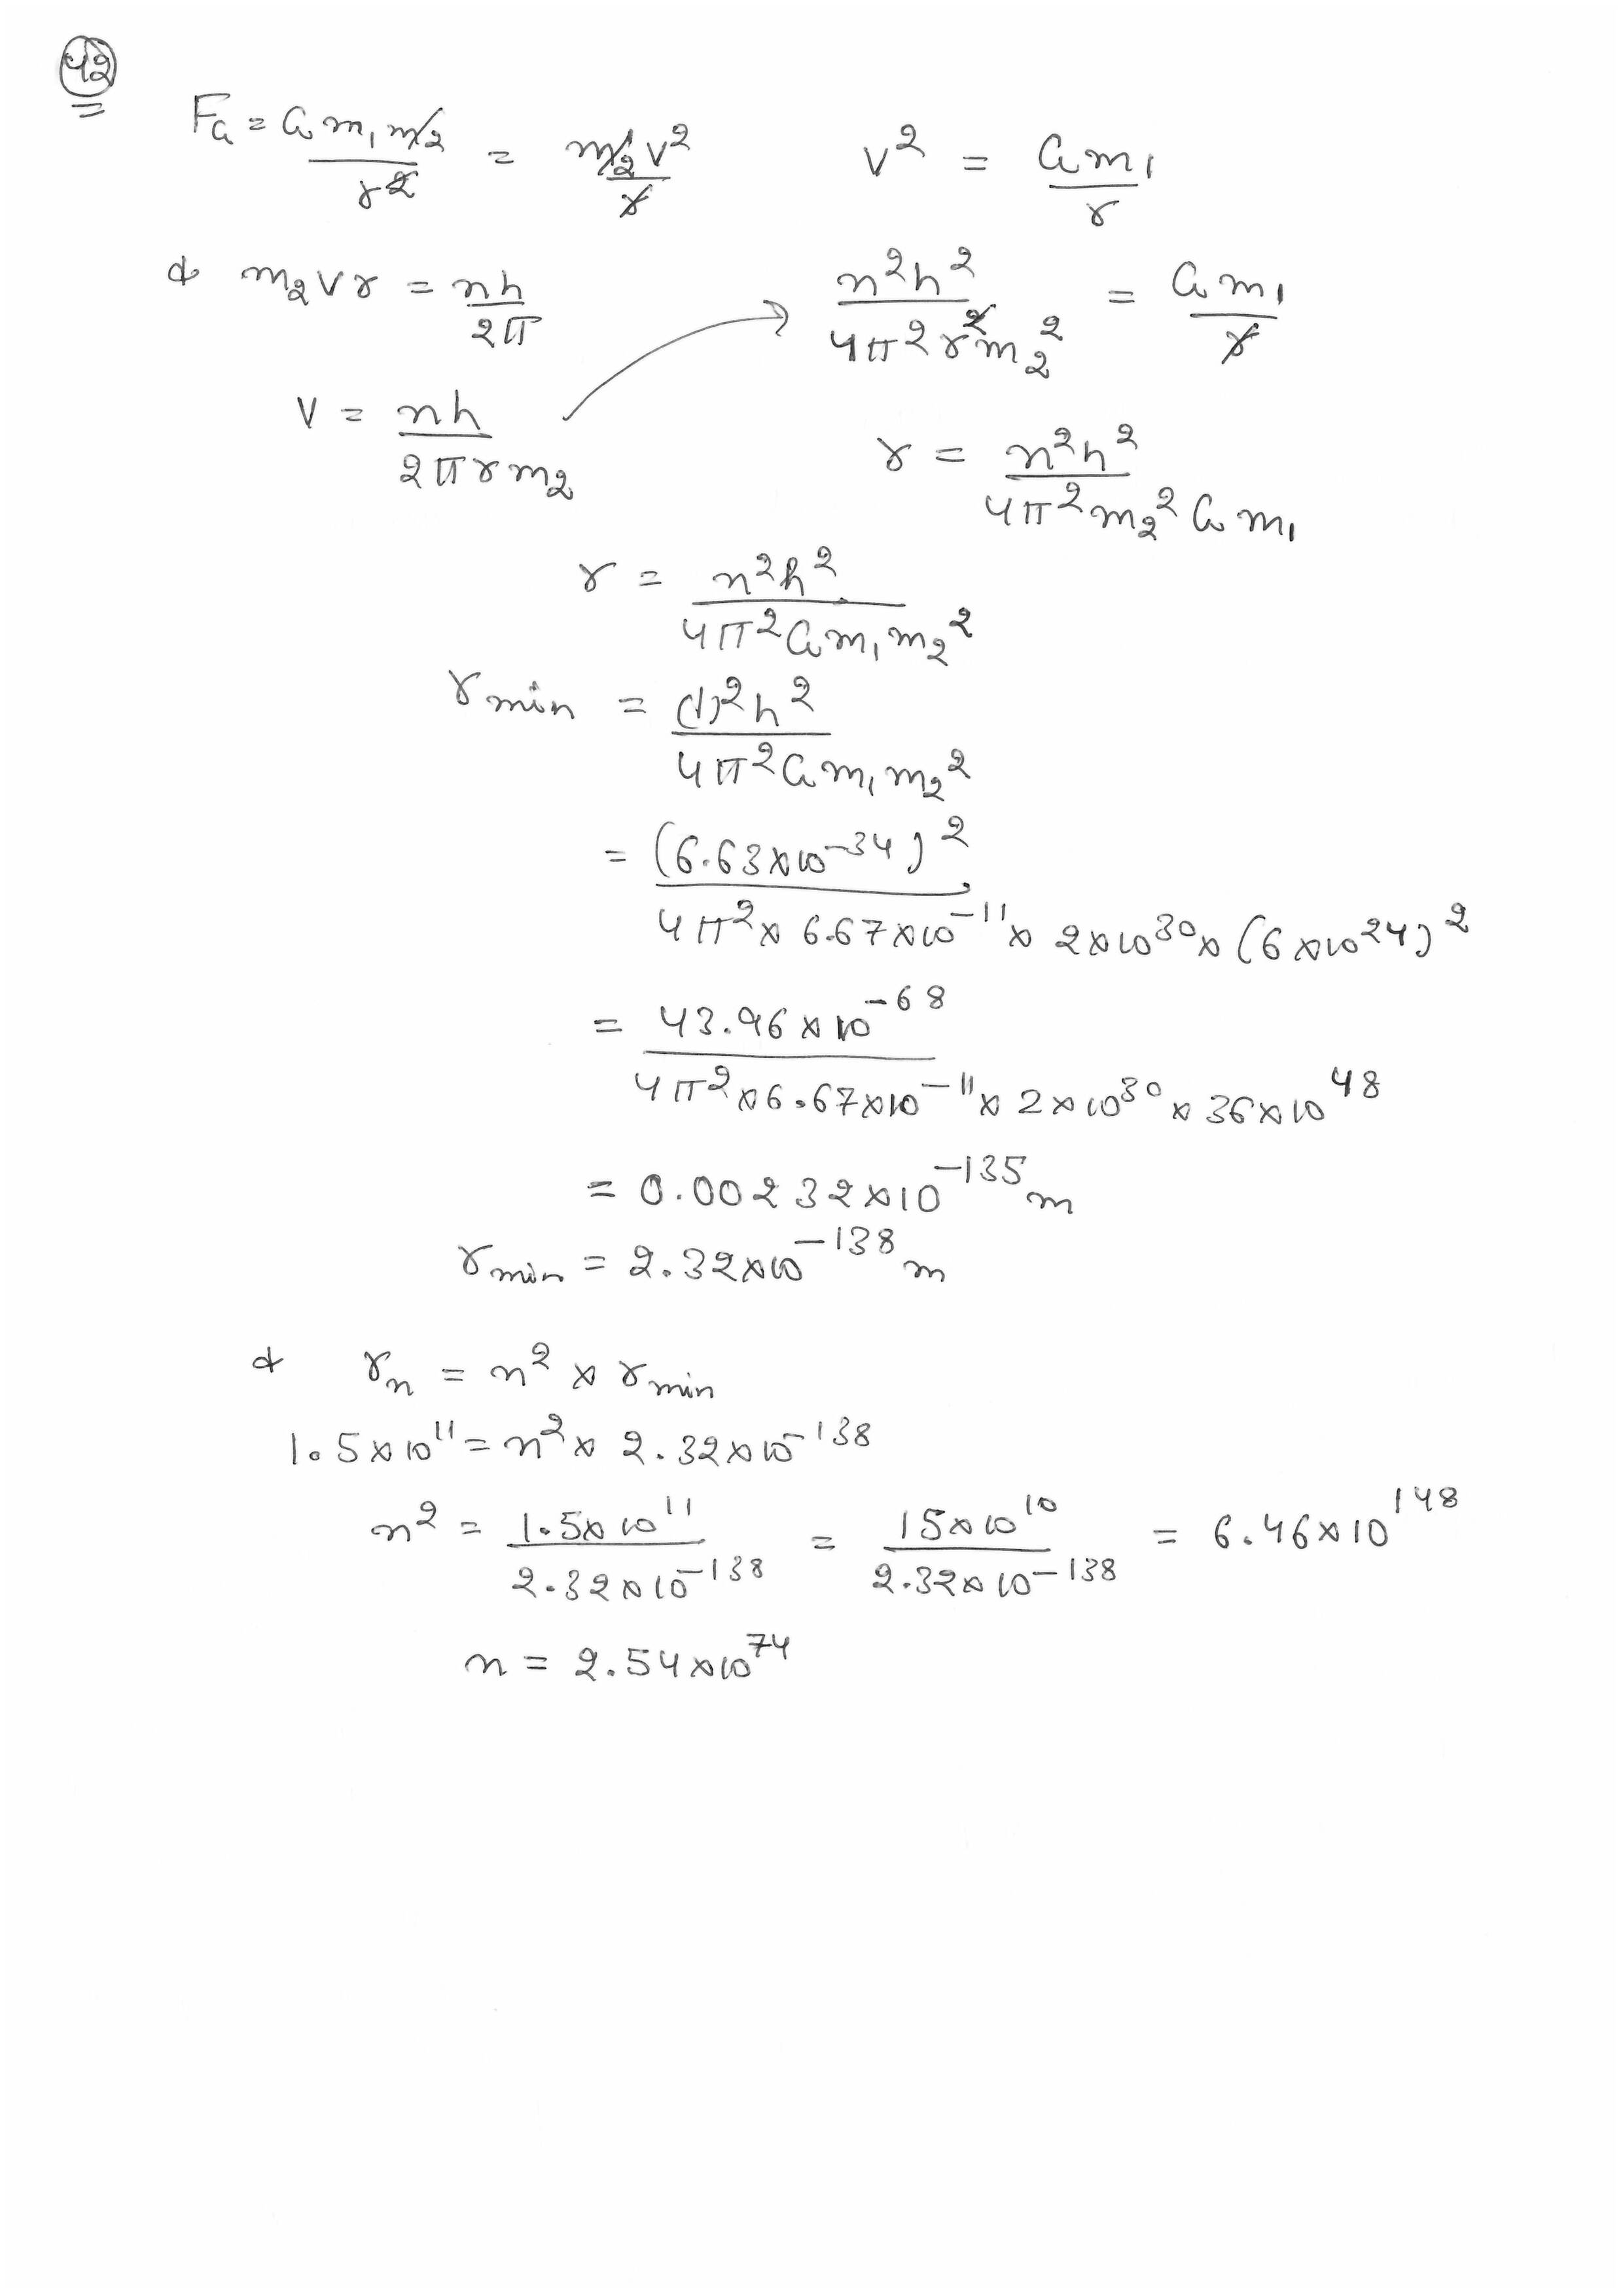 42
F_G = G m₁ m₂ / r² = m₂ v² / r    v² = G m₁ / r
& m₂ v r = nh / 2π    n²h² / 4π² r² m₂² = G m₁ / r
v = nh / 2π r m₂    r = n²h² / 4π² m₂² G m₁
r = n²h² / 4π² G m₁ m₂²
r min = (1)² h² / 4π² G m₁ m₂²
= (6.63×10⁻³⁴)² / 4π² × 6.67×10⁻¹¹ × 2×10³⁰ × (6×10²⁴)²
= 43.96×10⁻⁶⁸ / 4π² × 6.67×10⁻¹¹ × 2×10³⁰ × 36×10⁴⁸
= 0.00232×10⁻¹³⁵ m
r min = 2.32×10⁻¹³⁸ m
& r_n = n² × r min
1.5×10¹¹ = n² × 2.32×10⁻¹³⁸
n² = 1.5×10¹¹ / 2.32×10⁻¹³⁸ = 15×10¹⁰ / 2.32×10⁻¹³⁸ = 6.46×10¹⁴⁸
n = 2.54×10⁷⁴